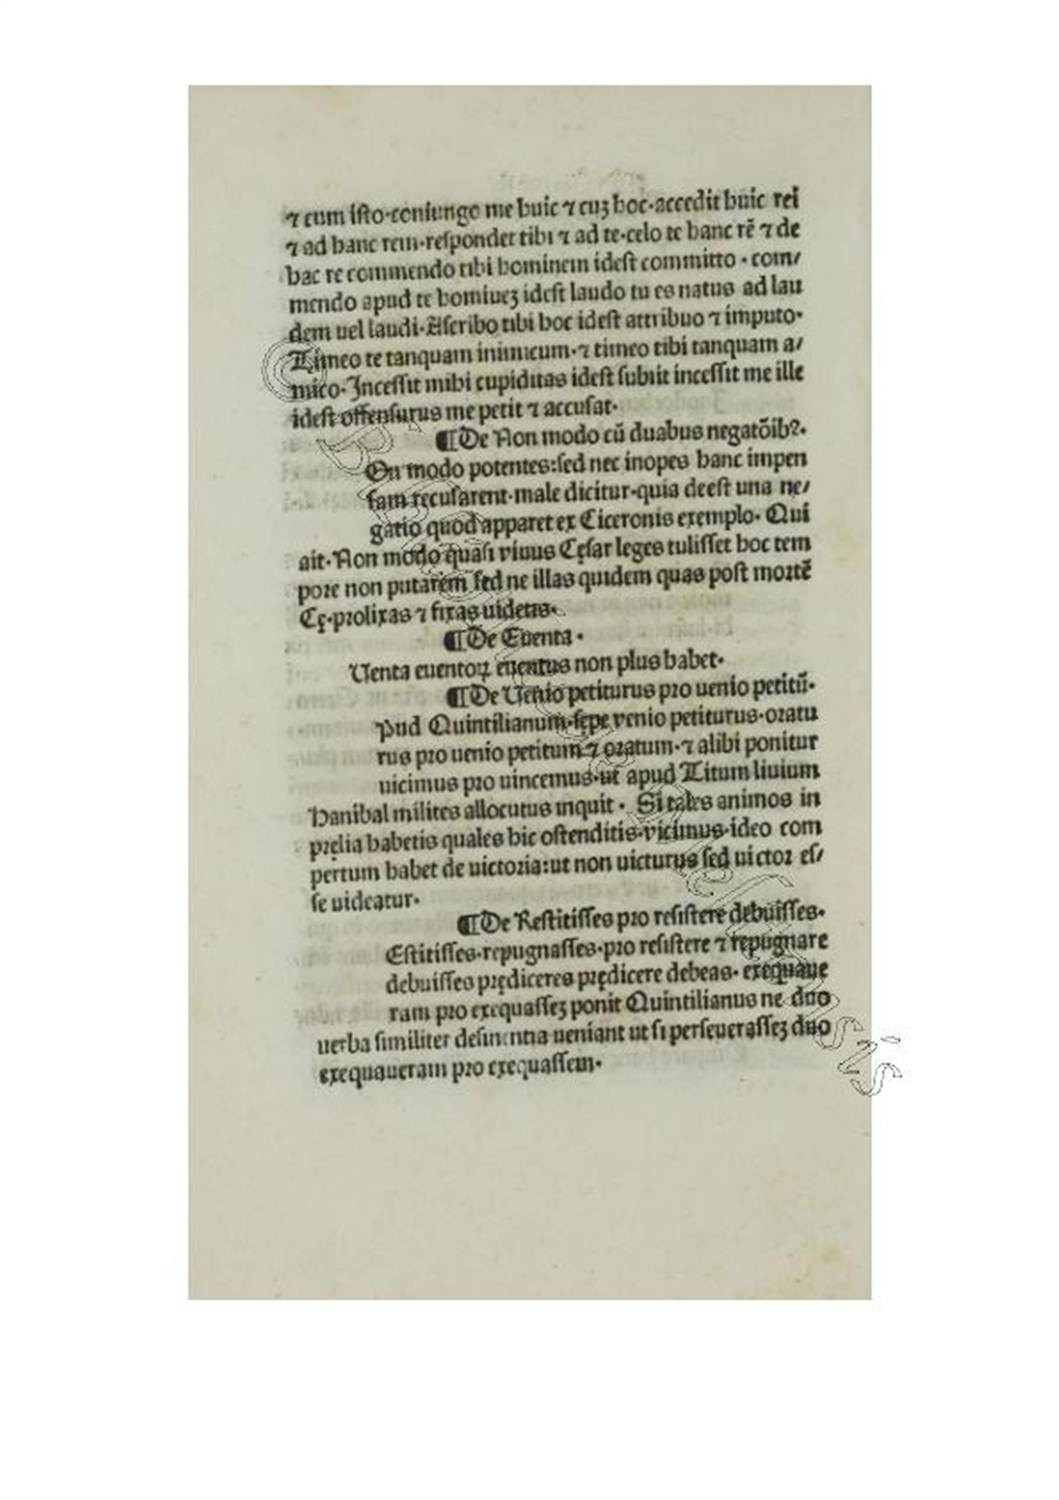 ⁊ cum iſto·coniungo me huic ⁊ cuʒ hoc·accedit huic rei
⁊ ad hanc rem·reſpondet tibi ⁊ ad te·celo te hanc rē ⁊ de
hac re commendo tibi hominem ideſt committo · com/
mendo apud te homineʒ ideſt laudo tu es natus ad lau
dem uel laudi·Aſcribo tibi hoc ideſt attribuo ⁊ imputo·
Timeo te tanquam inimicum·⁊ timeo tibi tanquam a/
mico·Inceſſit mihi cupiditas ideſt ſubiit inceſſit me ille
ideſt offenſurus me petit ⁊ accuſat·
¶De Non modo cū duabus negatōibꝰ·
On modo potentes:ſed nec inopes hanc impen
ſam recuſarent·male dicitur·quia deeſt una ne/
gatio quod apparet ex Ciceronis exemplo· Qui
ait·Non modo quaſi viuus Cęſar leges tuliſſet hoc tem
pore non putarem ſed ne illas quidem quas poſt mortē
Cę·prolixas ⁊ fixas uidetis·
¶De Euenta ·
Uenta euentoꝝ euentus non plus habet·
¶De Uenio petiturus pro uenio petitū·
Pud Quintilianum·ſępe venio petiturus·oratu
rus pro uenio petitum ⁊ oratum·⁊ alibi ponitur
uicimus pro uincemus·ut apud Titum liuium
Hanibal milites allocutus inquit · Si tales animos in
pręlia habetis quales hic oſtenditis·vicimus·ideo com
pertum habet de uictoria:ut non uicturus ſed uictor eſ/
ſe uideatur·
¶De Reſtitiſſes pro reſiſtere debuiſſes·
Eſtitiſſes·repugnaſſes·pro reſiſtere ⁊ repugnare
debuiſſes prędiceres prędicere debeas· exequaue
ram pro exequaſſeʒ ponit Quintilianus ne duo
uerba ſimiliter deſinentia ueniant ut ſi perſeueraſſeʒ duo
exequaueram pro exequaſſem·